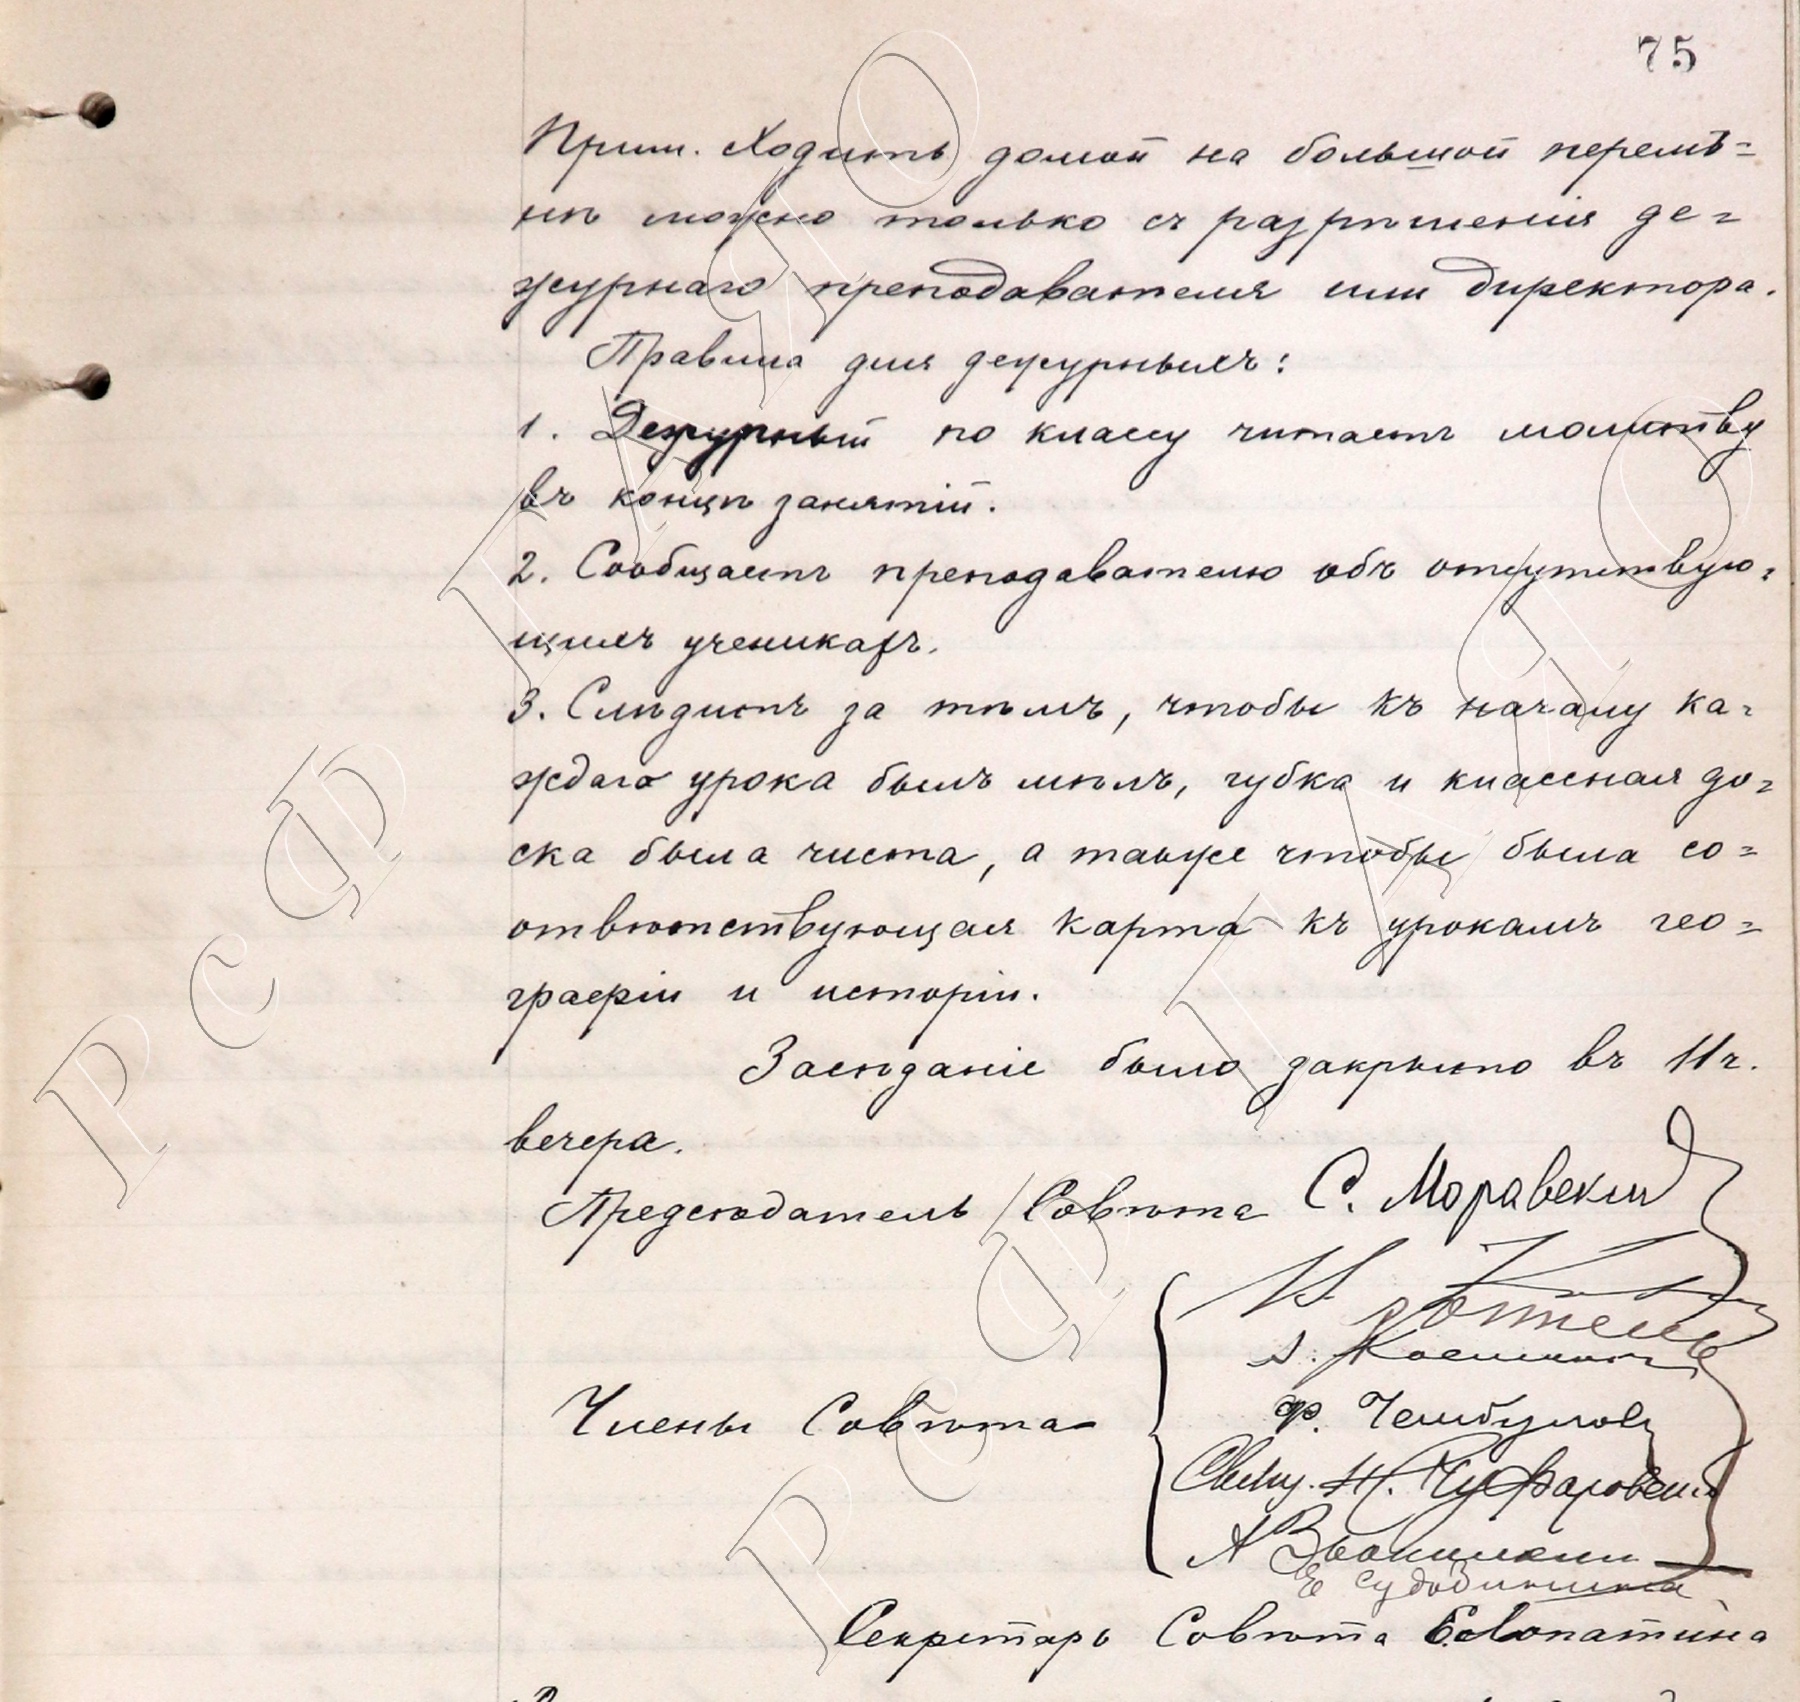 75
Прим. Ходить домой на большой перемѣ=
нѣ можно только съ разрѣшенія де=
журнаго преподавателя или директора.
Правила для дежурныхъ:
1. Дежурный по классу читаетъ молитву
въ концѣ занятій.
2. Сообщаетъ преподавателю объ отсутствую=
щихъ ученикахъ.
3. Слѣдитъ за тѣмъ, чтобы къ началу ка=
ждаго урока былъ мѣлъ, губка и классная до=
ска была чиста, а также чтобы была со=
отвѣтствующая карта къ урокамъ гео=
графіи и исторіи.
Засѣданіе было закрыто въ 11 ч.
вечера.
Предсѣдатель Совѣта С. Моравскій
Члены Совѣта
Ф. Чембулов
Свящ. Н. Чуфаровскій
А Звонишкин
Секретарь Совѣта Е. Лопатина